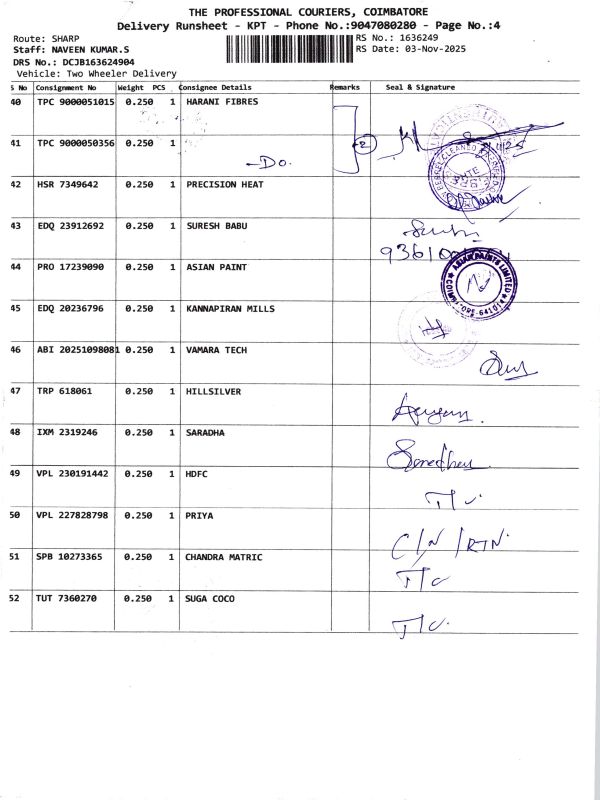 THE PROFESSIONAL COURIERS, COIMBATORE
Delivery Runsheet - KPT - Phone No.:9047080280 - Page No.:4
Route: SHARP RS No.: 1636249
Staff: NAVEEN KUMAR.S RS Date: 03-Nov-2025
DRS No.: DCJB163624904
Vehicle: Two Wheeler Delivery
S No Consignment No Weight PCS Consignee Details Remarks Seal & Signature
40 TPC 9000051015 0.250 1 HARANI FIBRES
41 TPC 9000050356 0.250 1 -Do. 2
42 HSR 7349642 0.250 1 PRECISION HEAT
43 EDQ 23912692 0.250 1 SURESH BABU
44 PRO 17239090 0.250 1 ASIAN PAINT
ASIAN PAINTS LIMITED
45 EDQ 20236796 0.250 1 KANNAPIRAN MILLS
46 ABI 20251098081 0.250 1 VAMARA TECH
47 TRP 618061 0.250 1 HILLSILVER
48 IXM 2319246 0.250 1 SARADHA
49 VPL 230191442 0.250 1 HDFC
50 VPL 227828798 0.250 1 PRIYA C/N/RTN.
51 SPB 10273365 0.250 1 CHANDRA MATRIC T/C
52 TUT 7360270 0.250 1 SUGA COCO T/C.